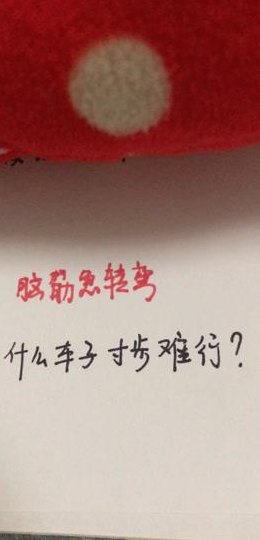 脑筋急转弯
什么车子寸步难行?